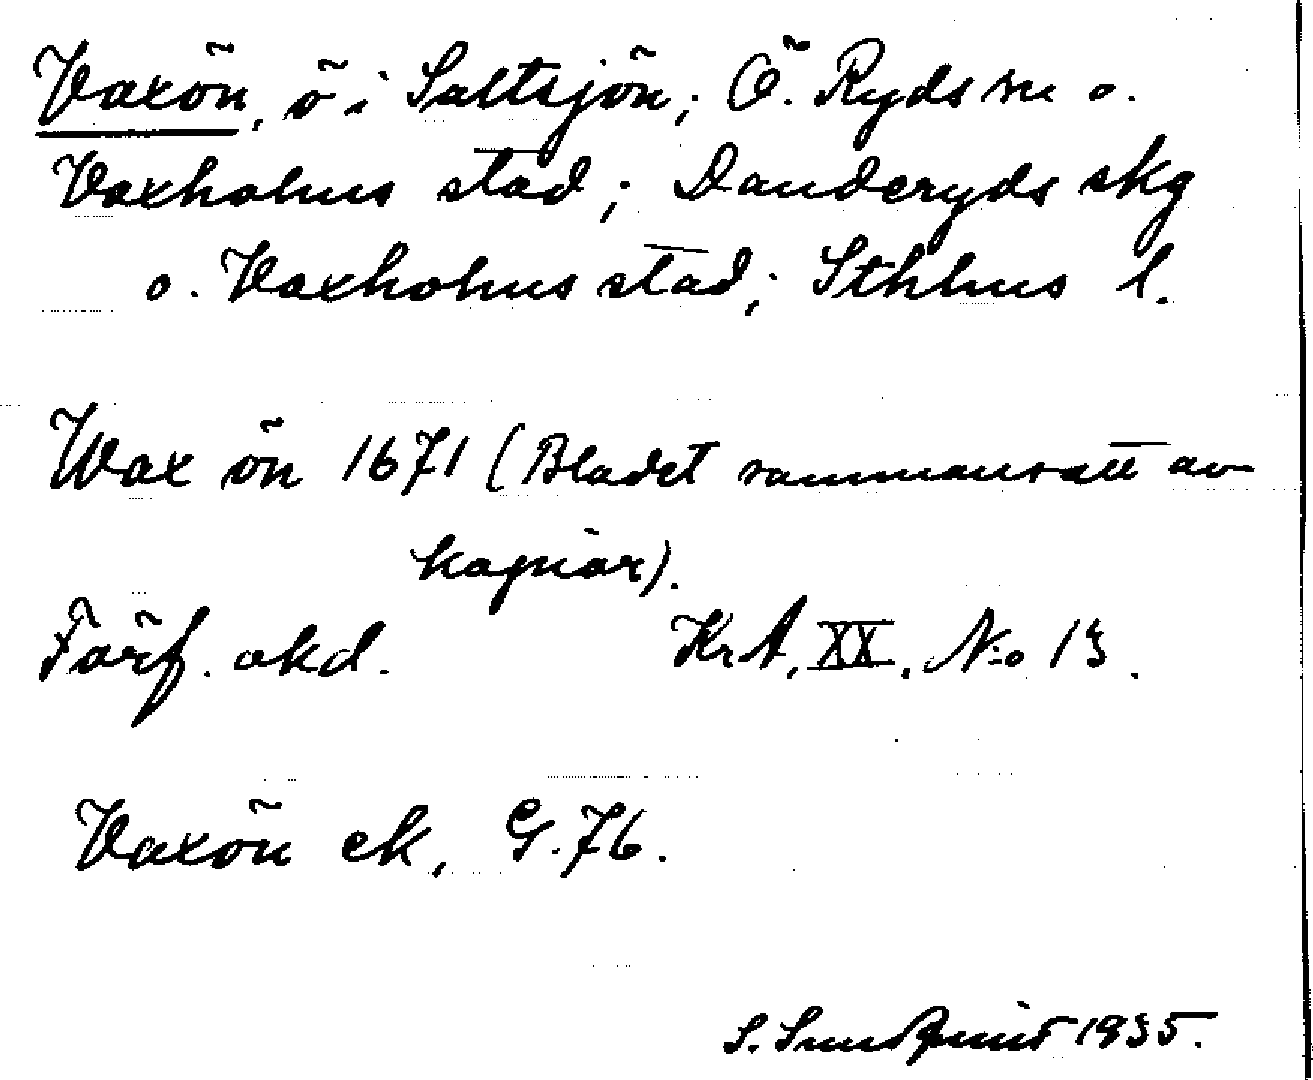 Vaxön, ö i Saltsjön; Ö. Ryds sn o.
Vaxholms stad; Danderyds skg
o. Vaxholms stad; Sthlms l.
Wax ön 1671 (Bladet sammansatt av
kopior).
Förf. okd. KrA, XX, No 13.
Vaxön ek, G. 76.
S. Sundquist 1935.